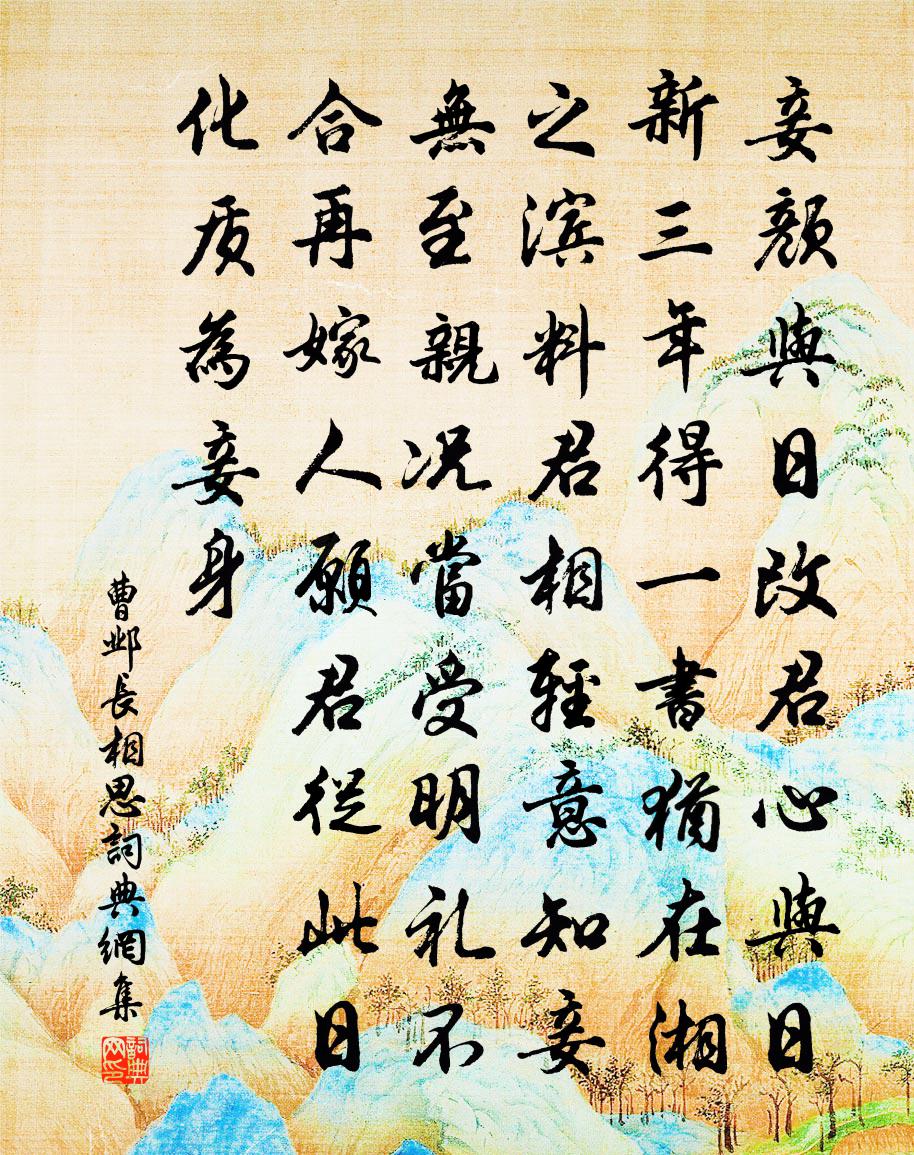 妾颜與日改君心與日
新三年得一書猶在湘
之滨料君相輕意知妾
無至親况當受明礼不
合再嫁人願君從此日
化质為妾身
曹邺長相思詞典網集
詞典網印